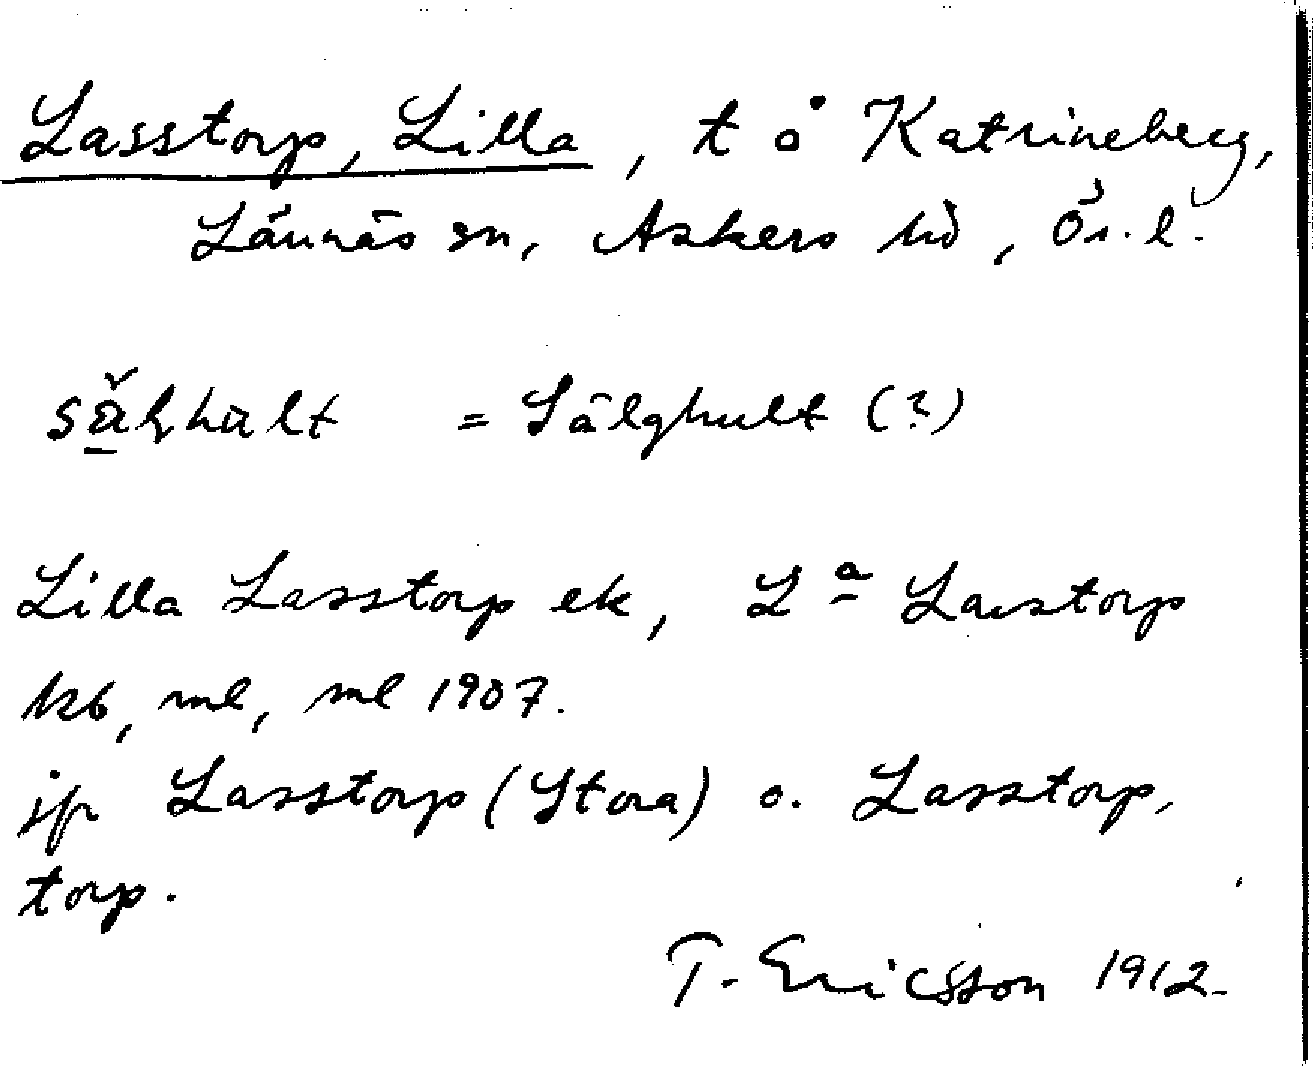 Lasstorp, Lilla, t å Katrineberg,
Lännäs sn, Askers hd, Ör. l.
= Sälghult (?)
Lilla Lasstorp ek, Lª Lasstorp
kb, ml, ml 1907.
jfr Lasstorp (Stora) o. Lasstorp,
torp.
T. Ericsson 1912.